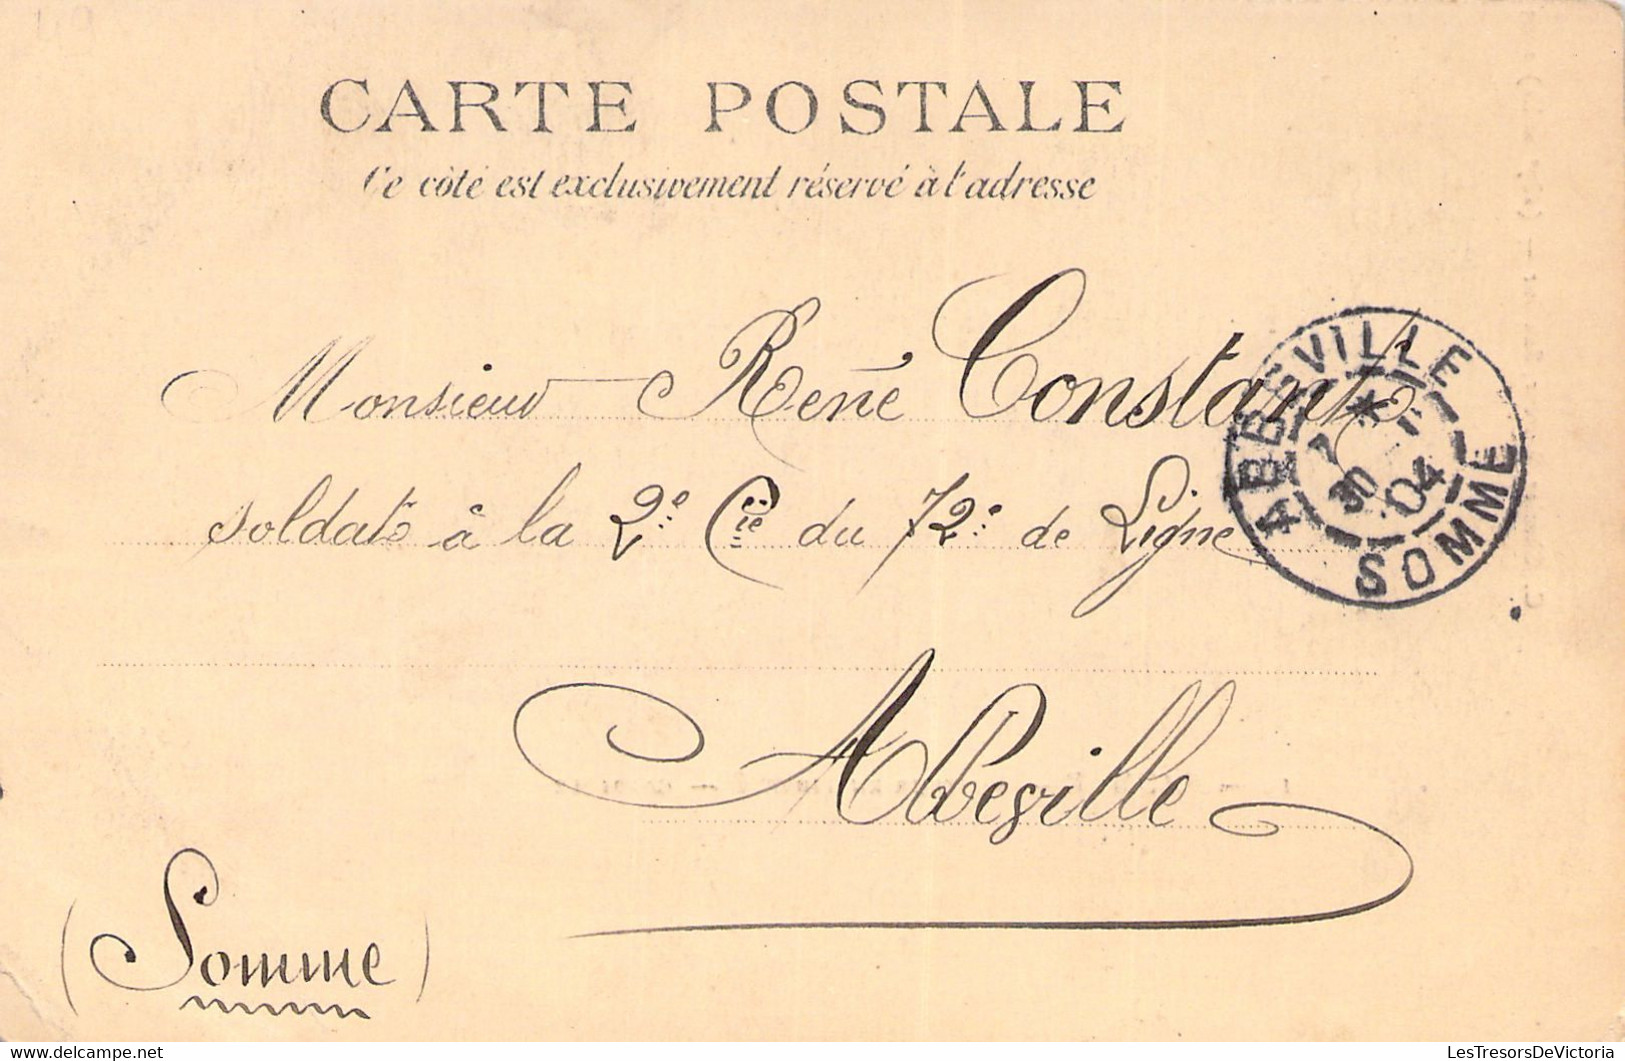 CARTE POSTALE
Ce côté est exclusivement réservé à l'adresse
Monsieur René Constant
soldat à la 2e Cie du 72e de Ligne
Abbeville
(Somme)
ABBEVILLE
30
04
SOMME
LesTresorsDeVictoria